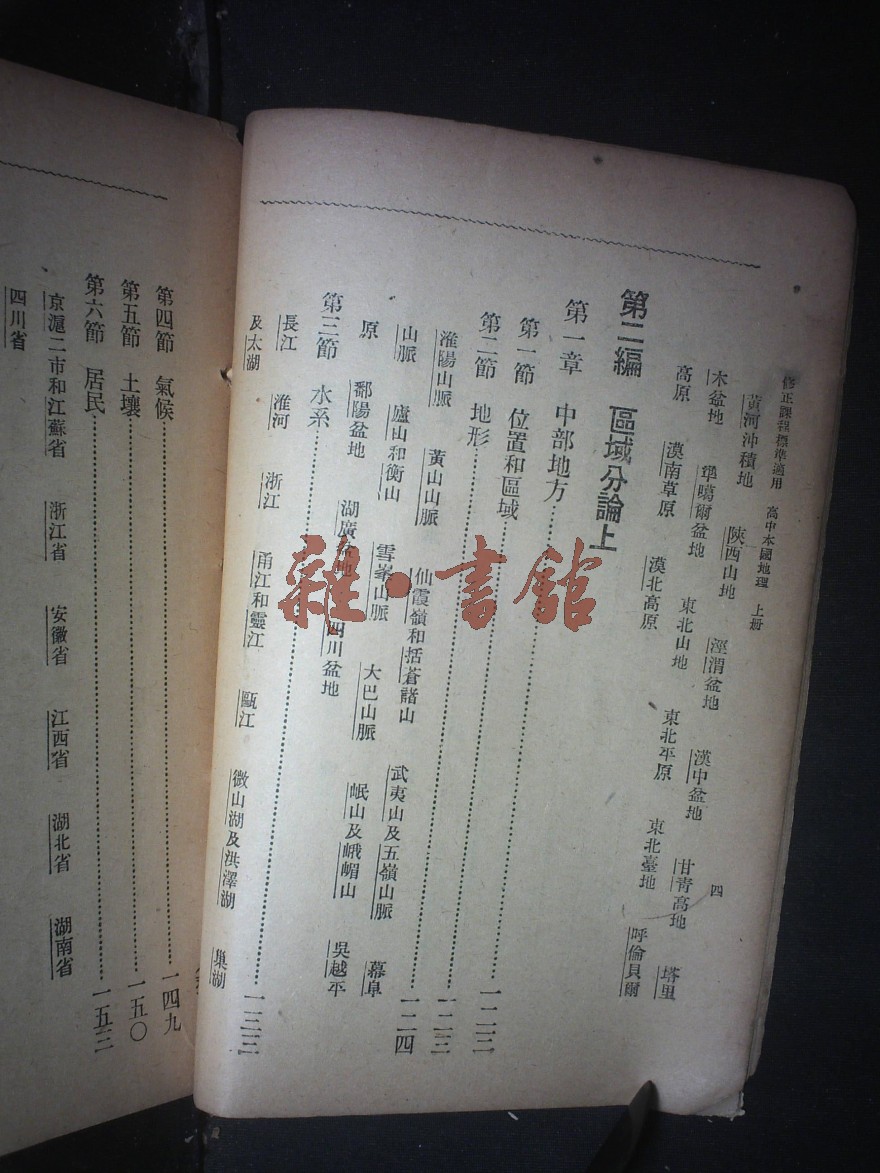 修正課程標準適用 高中本國地理 上册 四
黃河沖積地 陝西山地 涇渭盆地 漢中盆地 甘靑高地 塔里
木盆地 準噶爾盆地 東北山地 東北平原 東北臺地 呼倫貝爾
高原 漠南草原 漠北高原
第二編 區域分論上
第一章 中部地方……一二三
第一節 位置和區域……一二三
第二節 地形……一二四
淮陽山脈 黃山山脈 仙霞嶺和括蒼諸山 武夷山及五嶺山脈 幕阜
山脈 廬山和衡山 雪峯山脈 大巴山脈 岷山及峨嵋山 吳越平
原 鄱陽盆地 湖廣盆地 四川盆地
第三節 水系……一三三
長江 淮河 浙江 甬江和靈江 甌江 微山湖及洪澤湖 巢湖
及太湖
第四節 氣候……一四九
第五節 土壤……一五〇
第六節 居民……一五三
京滬二市和江蘇省 浙江省 安徽省 江西省 湖北省 湖南省
四川省
雜·書館